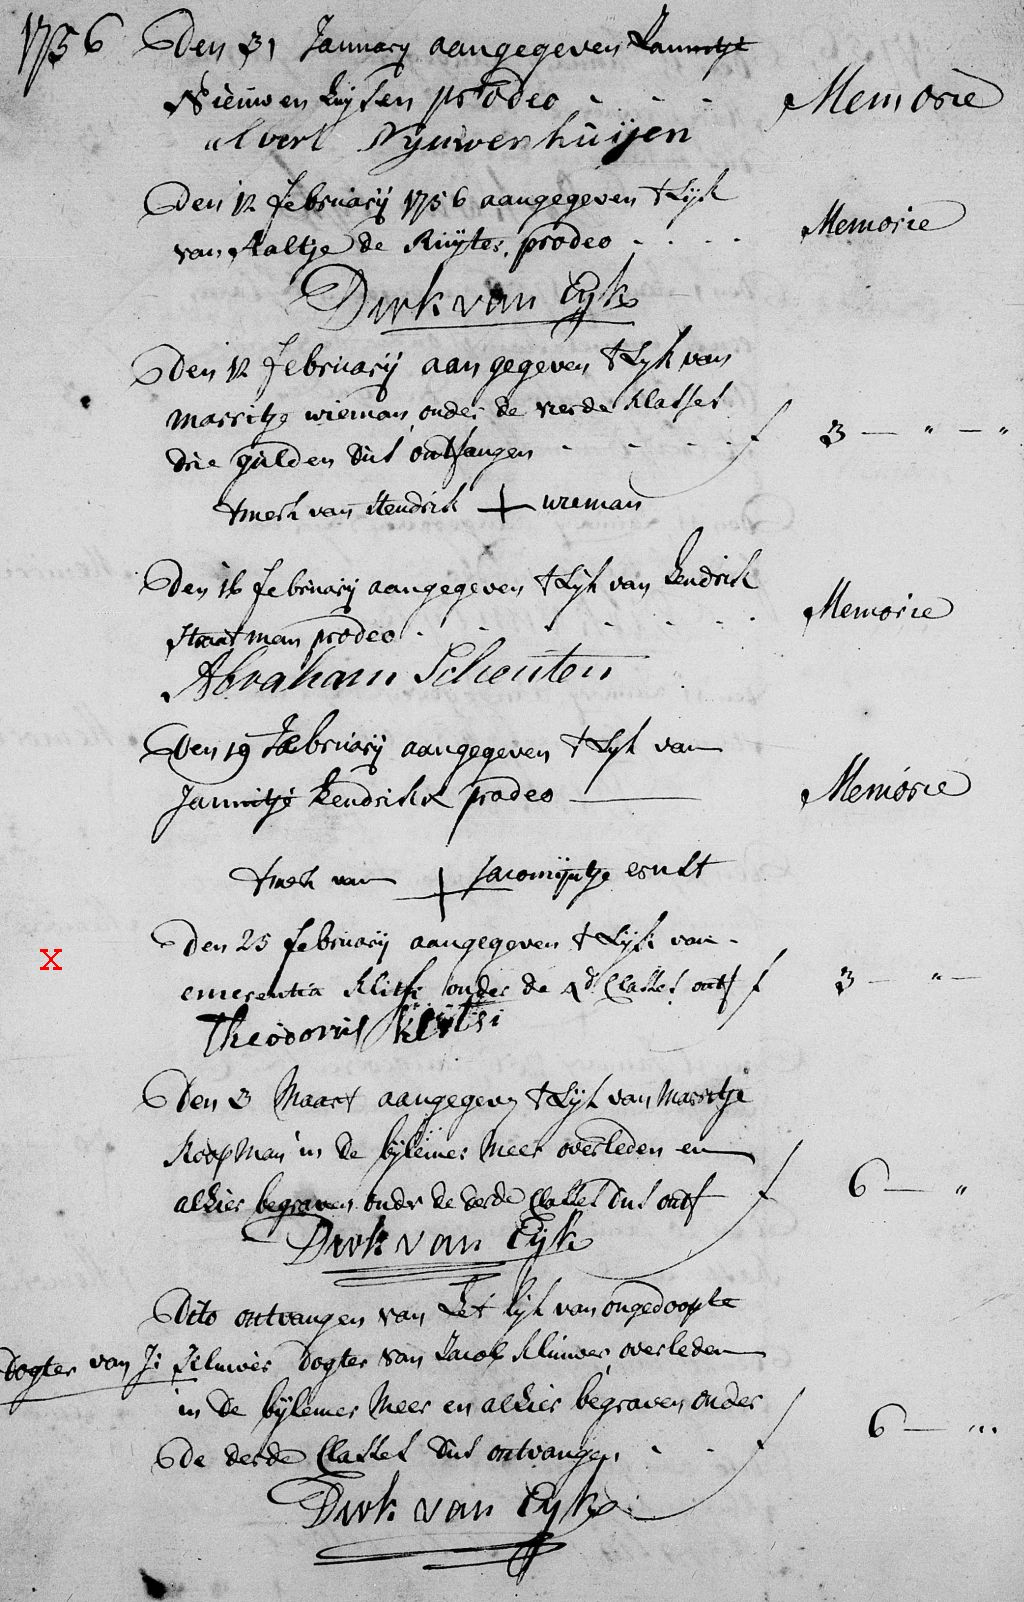 1756 Den 31 January aangegeven Jannitje
Nieuwen Huysen prodeo - - - Memorie
Evert Nyuwenhuijen
Den 12 february 1756 aangegeven t Lijk
van Aaltje de Ruijter prodeo - . . . Memorie
Dirk van Eyk
Den 12 february aan gegeven t Lyk van
Marritje wieman onder de vierde Klasses
drie gulden dus ontfangen - - - - f 3 — " — "
t merk van Hendrik + wieman
Den 16 february aangegeven t Lijk van Hendrik
Straatman prodeo - - - - - - Memorie
Abraham Scheuten
Den 19 February aangegeven t Lyk van
Jannitje Hendriks prodeo — Memorie
t merk van + Jacomijntje
Den 25 february aangegeven t Lijk van -
X emerentia Klitsi onder de 4d Classes ontf f 3 — " —
Theodorus Klijtsi
Den 3 Maart aangegeven t Lijk van Marritje
Koopman in de bijlemer Meer overleden en
alhier begraven onder de derde Classes dus ontf f 6 — "
Dirk van Eyk
Dito ontvangen van Het Lijk van ongedoopte
dogter van J: Kluwer dogter van Jacob Kluwer overleden
in de bijlemer Meer en alhier begraven onder
de derde Classes dus ontvangen - - f 6 — "
Dirk van Eyk